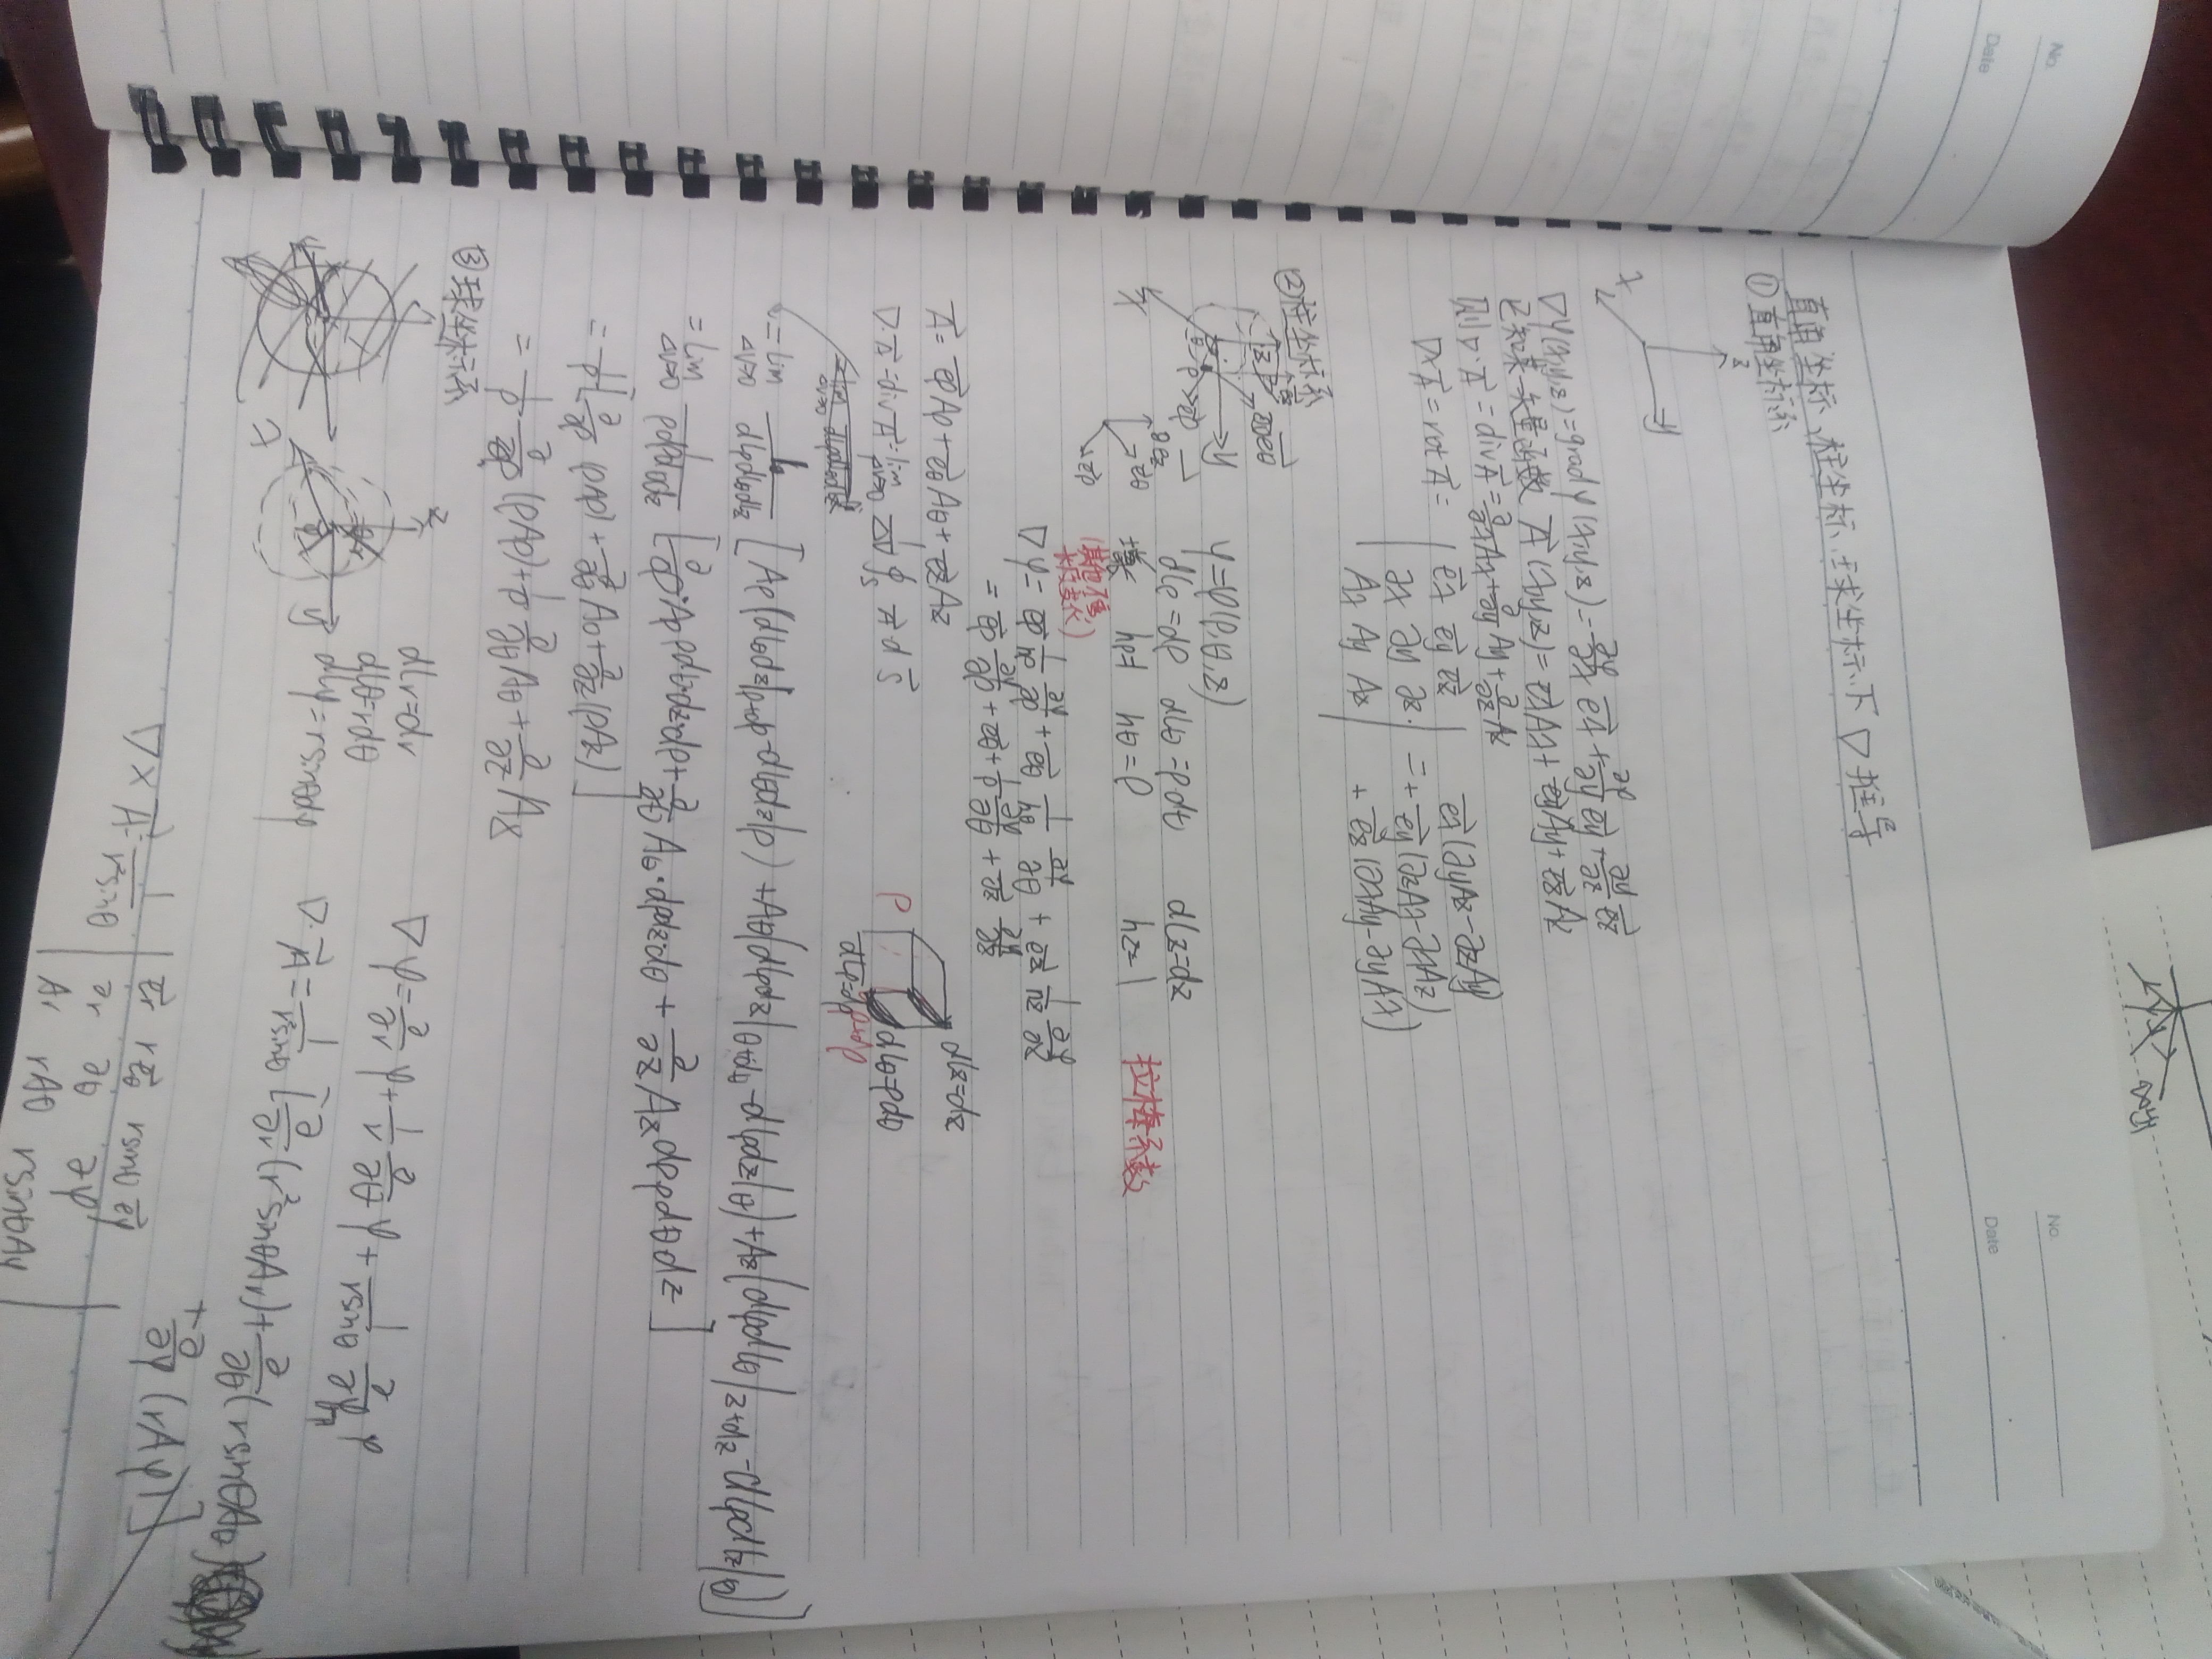 No.
Date
No.
Date
直角坐标、柱坐标、球坐标下 ∇ 推导
① 直角坐标系
z
y
x
∇φ(x,y,z) = grad φ(x,y,z) = ∂φ/∂x e⃗x + ∂φ/∂y e⃗y + ∂φ/∂z e⃗z
已知某一矢量函数 A⃗(x,y,z) = e⃗xAx + e⃗yAy + e⃗zAz
则 ∇·A⃗ = div A⃗ = ∂/∂x Ax + ∂/∂y Ay + ∂/∂z Az
∇×A⃗ = rot A⃗ = | e⃗x e⃗y e⃗z | = e⃗x(∂yAz - ∂zAy)
∂x ∂y ∂z + e⃗y(∂zAx - ∂xAz)
Ax Ay Az + e⃗z(∂xAy - ∂yAx)
② 柱坐标系
φ = φ(ρ,θ,z)
dlρ = dρ dlθ = ρdθ dlz = dz
hρ=1 hθ=ρ hz=1 拉梅系数
∇φ = e⃗ρ 1/hρ ∂φ/∂ρ + e⃗θ 1/hθ ∂φ/∂θ + e⃗z 1/hz ∂φ/∂z
= e⃗ρ ∂φ/∂ρ + e⃗θ 1/ρ ∂φ/∂θ + e⃗z ∂φ/∂z
A⃗ = e⃗ρAρ + e⃗θAθ + e⃗zAz
dlz=dz
∇·A⃗ = div A⃗ = lim ΔV→0 1/ΔV ∮s A⃗·dS⃗
ρ
dlθ=ρdθ
dlρ=dρ
ρ+dρ
= lim ΔV→0 1/dlρdlθdlz [Aρ(dlθdlz|ρ+dρ - dlθdlz|ρ) + Aθ(dlρdlz|θ+dθ - dlρdlz|θ) + Az(dlρdlθ|z+dz - dlρdlθ|z)]
= lim ΔV→0 1/ρdρdθdz [∂/∂ρ·Aρ ρdθ·dz·dρ + ∂/∂θ Aθ·dρdzdθ + ∂/∂z Az dρ ρdθdz]
= 1/ρ [∂/∂ρ (ρAρ) + ∂/∂θ Aθ + ∂/∂z (ρAz)]
= 1/ρ ∂/∂ρ (ρAρ) + 1/ρ ∂/∂θ Aθ + ∂/∂z Az
③ 球坐标系
z
y
x
dlr=dr
dlθ=rdθ
dlφ=rsinθdφ
∇φ = ∂/∂r φ + 1/r ∂/∂θ φ + 1/rsinθ ∂/∂φ φ
∇·A⃗ = 1/r²sinθ [∂/∂r (r²sinθAr) + ∂/∂θ (rsinθAθ)
+ ∂/∂φ (rAφ)]
∇×A⃗ = 1/r²sinθ | e⃗r re⃗θ rsinθe⃗φ |
∂r ∂θ ∂φ
Ar rAθ rsinθAφ